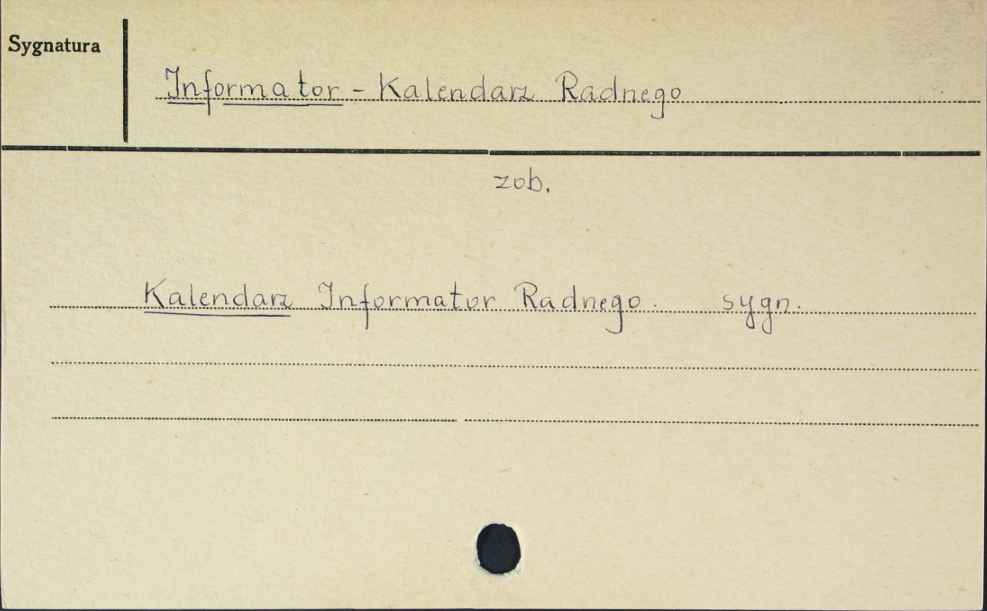 Sygnatura
Informator - Kalendarz Radnego
zob.
Kalendarz Informator Radnego. sygn.